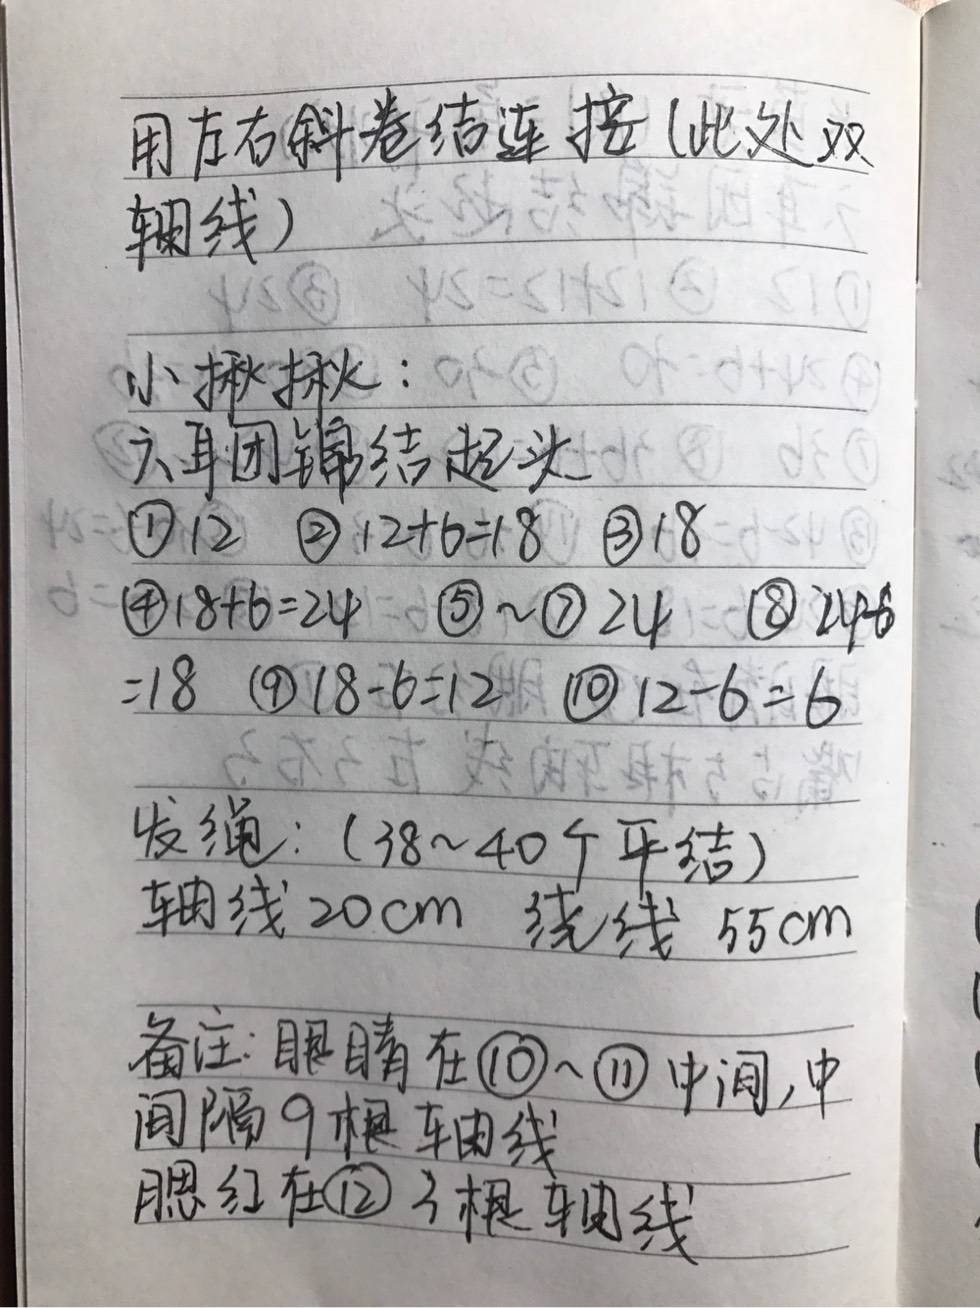 用左右斜卷结连接(此处双
轴线)
小揪揪:
六耳团锦结起头
①12 ②12+6=18 ③18
④18+6=24 ⑤~⑦24 ⑧24-6
=18 ⑨18-6=12 ⑩12-6=6
发绳:(38~40个平结)
轴线20cm 绕线 55cm
备注:眼睛在⑩~⑪中间,中
间隔9根轴线
腮红在⑫3根轴线